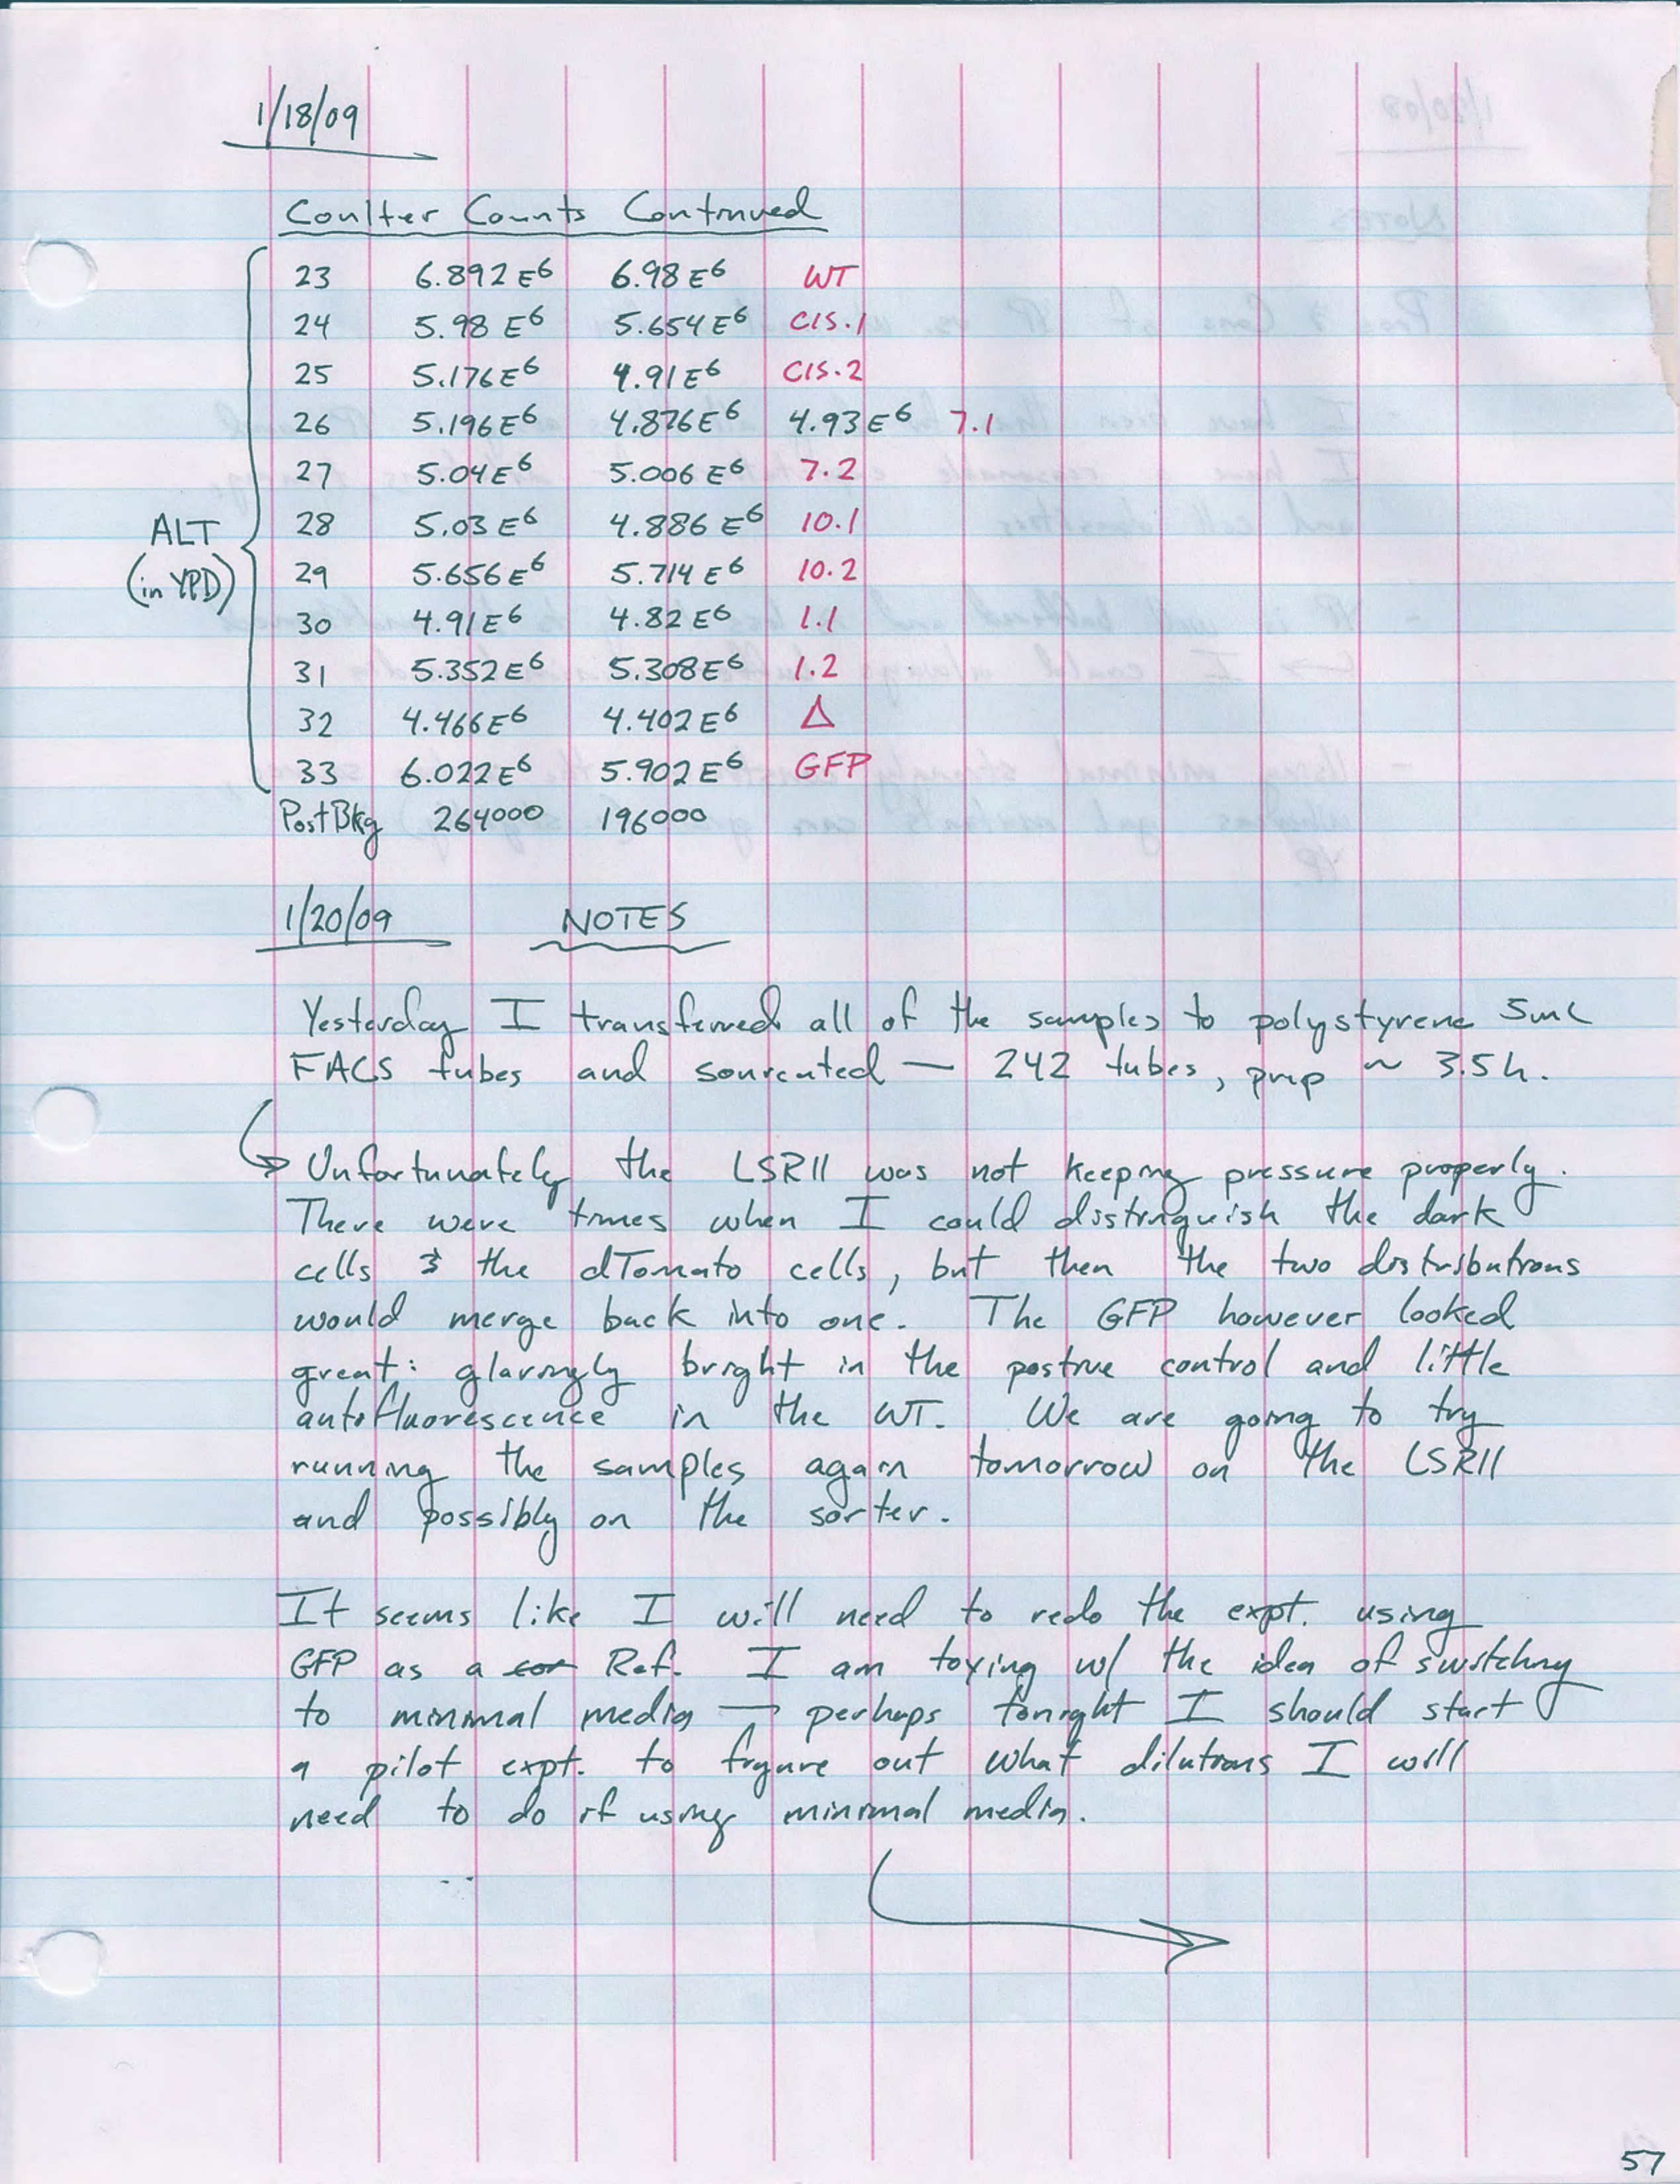 1/18/09
Coulter Counts Continued
23 6.892E6 6.98E6 WT
24 5.98E6 5.654E6 CIS.1
25 5.176E6 4.91E6 CIS.2
26 5.196E6 4.876E6 4.93E6 7.1
27 5.04E6 5.006E6 7.2
28 5.03E6 4.886E6 10.1
ALT
(in YPD)
29 5.656E6 5.714E6 10.2
30 4.91E6 4.82E6 1.1
31 5.352E6 5.308E6 1.2
32 4.466E6 4.402E6 Δ
33 6.022E6 5.902E6 GFP
Post Bkg 264000 196000
1/20/09 NOTES
Yesterday I transferred all of the samples to polystyrene 5mL
FACS tubes and sonicated — 242 tubes, prep ~ 3.5h.
↳ Unfortunately the LSRII was not keeping pressure properly.
There were times when I could distinguish the dark
cells & the dTomato cells, but then the two distributions
would merge back into one. The GFP however looked
great: glaringly bright in the positive control and little
autofluorescence in the WT. We are going to try
running the samples again tomorrow on the LSRII
and possibly on the sorter.
It seems like I will need to redo the expt. using
GFP as a Ref. I am toying w/ the idea of switching
to minimal media — perhaps tonight I should start
a pilot expt. to figure out what dilutions I will
need to do if using minimal media.
57